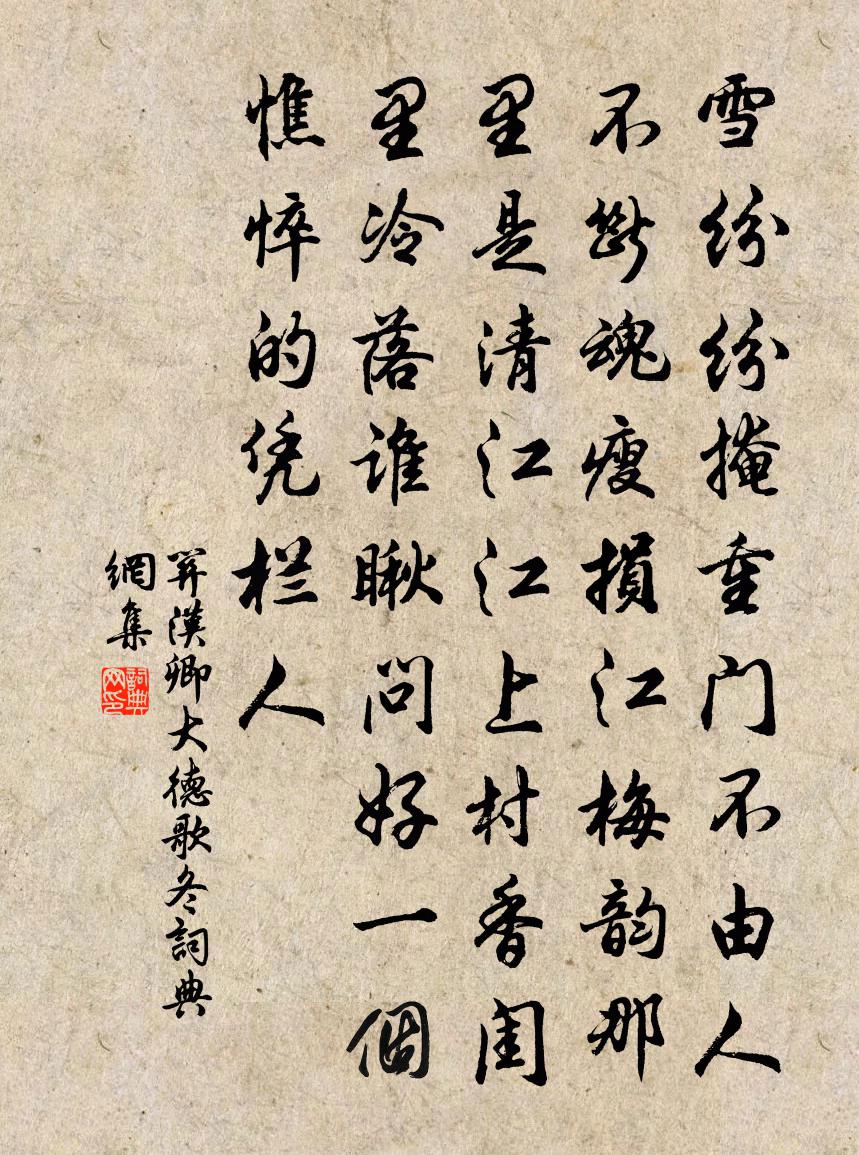 雪纷纷掩重门不由人
不断魂瘦损江梅韵那
里是清江江上村香闺
里冷落谁瞅问好一個
憔悴的凭栏人
關漢卿大德歌冬詞典
網集
詞典
网印